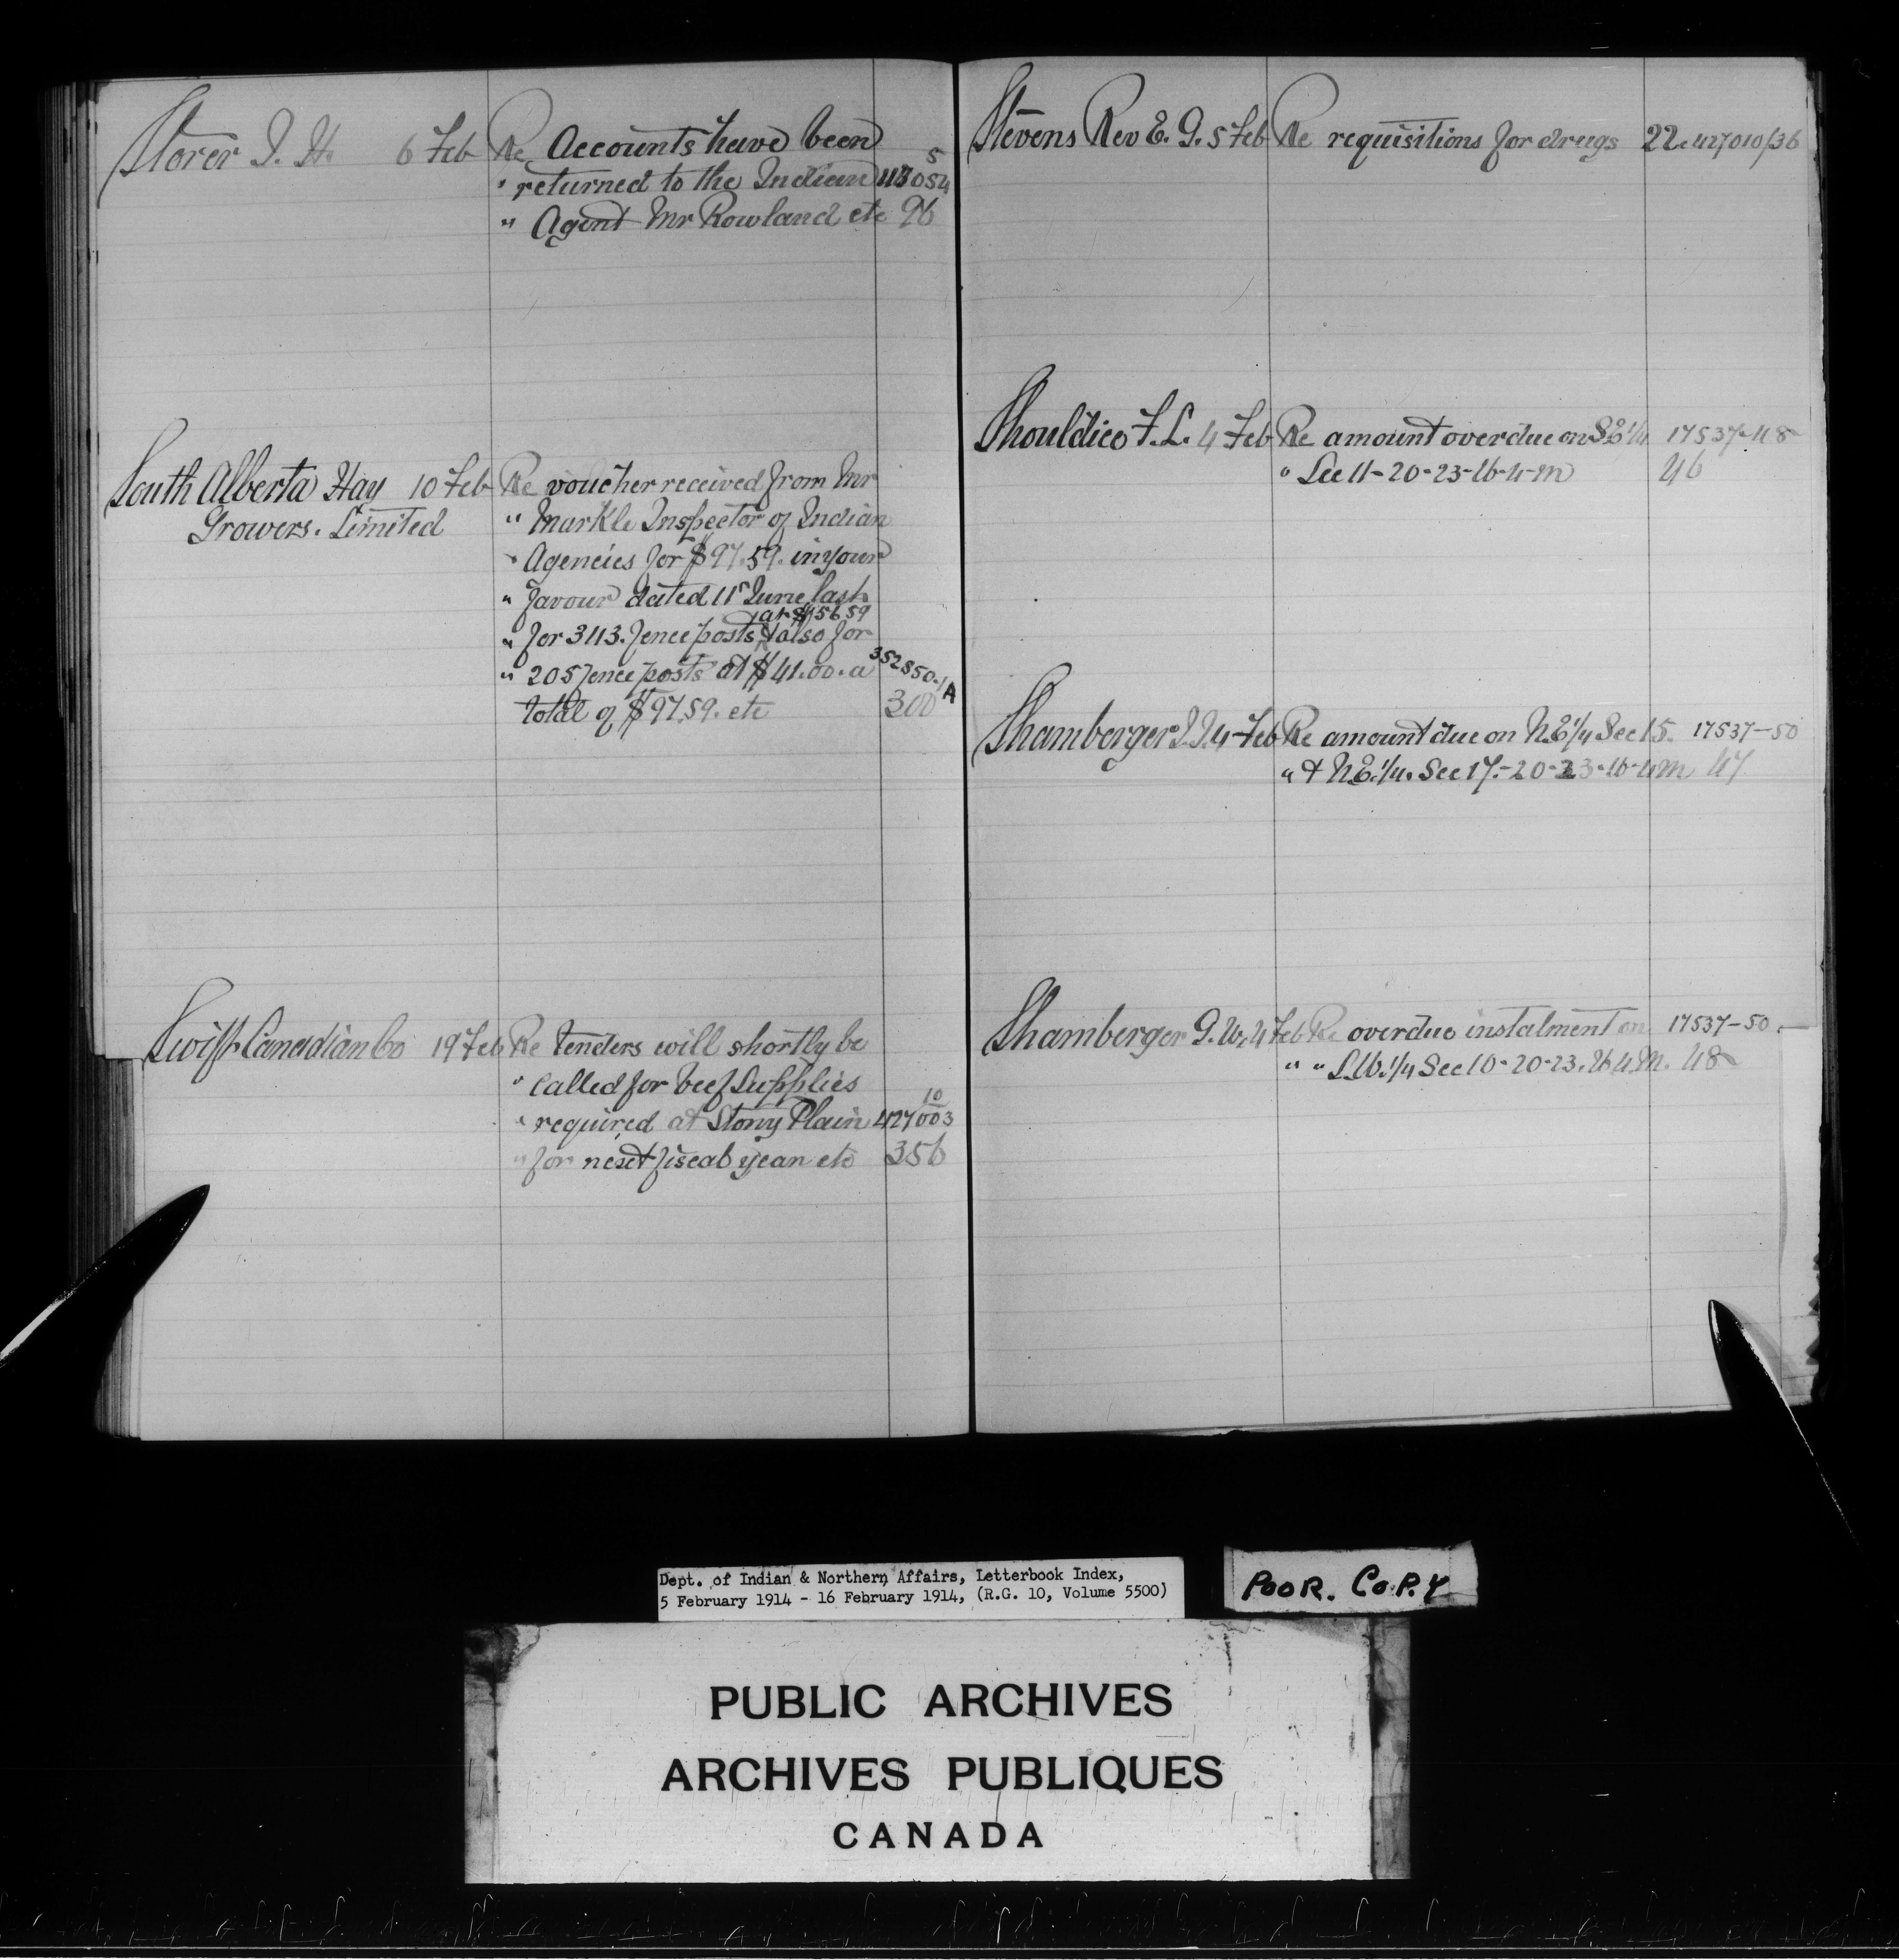 Storer J. H. 6 Feb Re Accounts have been 5
" returned to the Indian 117054
" Agent Mr Rowland etc 96
South Alberta Hay 10 Feb Re voucher received from Mr
Growers. Limited " Markle Inspector of Indian
" Agencies for $97.59. in your
" favour dated 11" June last
at $56 59
" for 3113. fence posts & also for
" 205 fence posts at $41.00. a 352550-1A
total of $97.59. etc 300
Swift Canadian Co 19 Feb Re tenders will shortly be
" called for beef supplies
" required at Stony Plain 427003 10
" for next fiscal year etc 356
Stevens Rev E. G. 5 Feb Re requisitions for drugs 22. 427010/36
Shouldice F. L. 4 Feb Re amount overdue on S.E 1/4 17537-48
" Sec 11-20-23-W-4-M 46
Shamberger J. J. 4 Feb Re amount due on N.E 1/4 Sec 15. 17537-50
" & N.E. 1/4. Sec 17.-20-23-W-4M 47
Shamberger G. W. 4 Feb Re overdue instalment on 17537-50.
" " S.W. 1/4 Sec 10-20-23. W 4. M. 48
Dept. of Indian & Northern Affairs, Letterbook Index,
5 February 1914 - 16 February 1914, (R.G. 10, Volume 5500)
POOR. COPY
PUBLIC ARCHIVES
ARCHIVES PUBLIQUES
CANADA